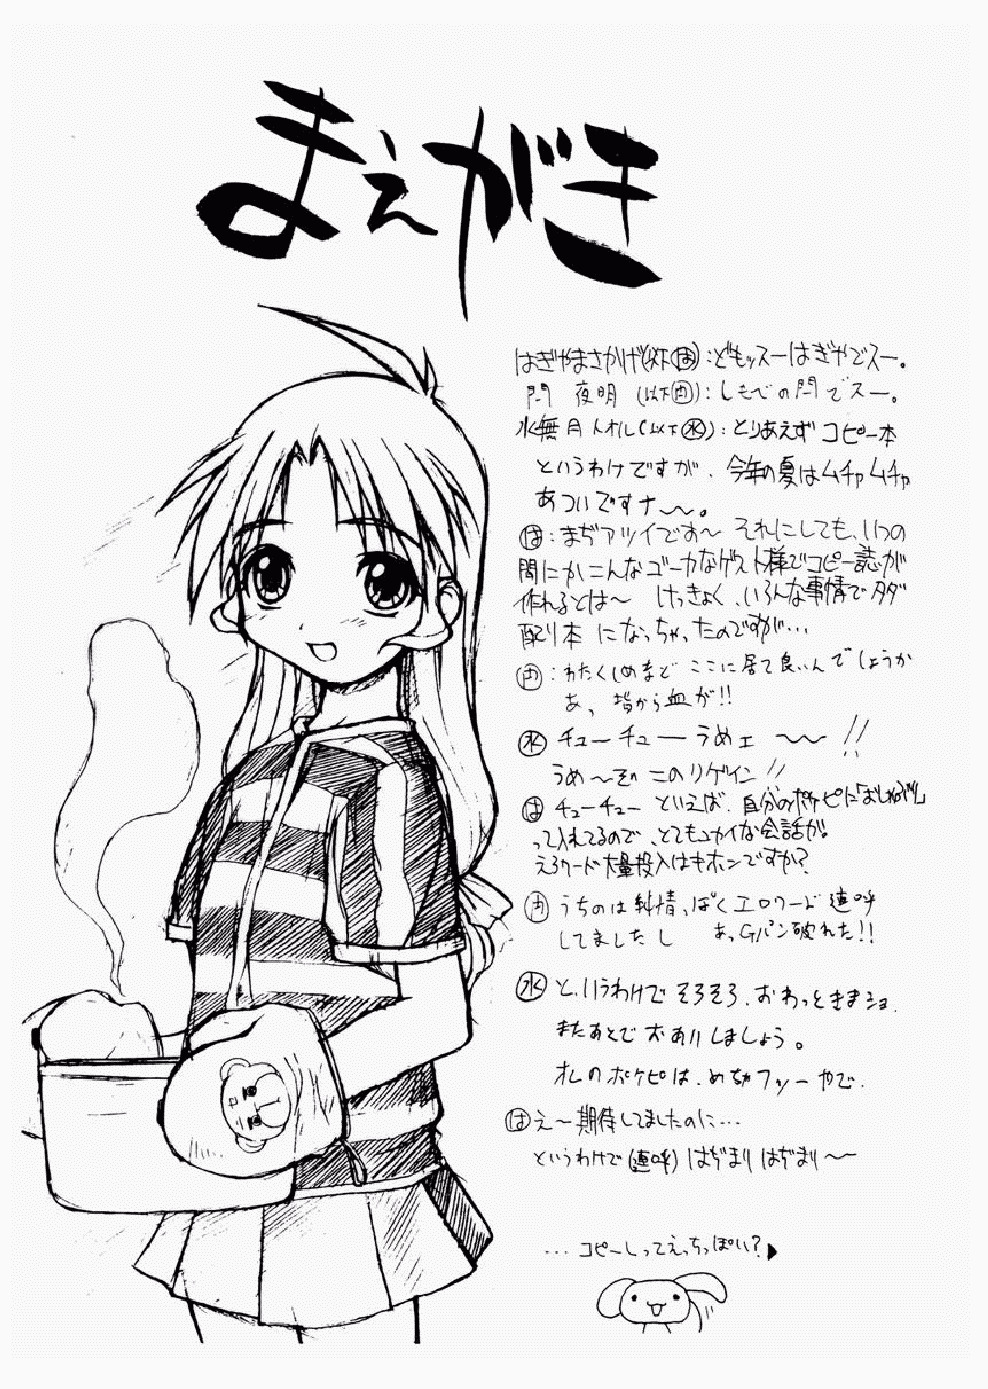 まえがき
はぎやまさかげ(以下は):どもッスーはぎやでスー。
門 夜明 (以下門):しもべの門でスー。
水無月トオル(以下水):とりあえずコピー本
というわけですが、今年の夏はムチャムチャ
あついですナ〜〜。
は:まぢアツイでお〜 それにしても、いつの
間にかこんなゴーカなゲスト様でコピー誌が
作れるとは〜 けっきょく、いろんな事情でタダ
配り本 になっちゃったのですが…
門:わたくしめまで ここに居て良いんでしょうか
あっ 指から血が!!
水 チューチューうめェ 〜〜 !!
うめ〜ぞ このリゲイン!!
は チューチュー といえば、自分のポケピに
って入れてるので、とてもユカイな会話が。
えろワード大量投入はキホンですか?
門 うちのは純情っぽくエロワード連呼
してましたし あっGパン破れた!!
水 と、いうわけで そろそろ、おわっときまショ.
またあとで お会いしましょう。
オレのポケピは、めちゃフツーやで.
は え〜期待してましたのに…
というわけで(連呼)はぢまりはぢまり〜〜
…コピーしってえっちっぽい?